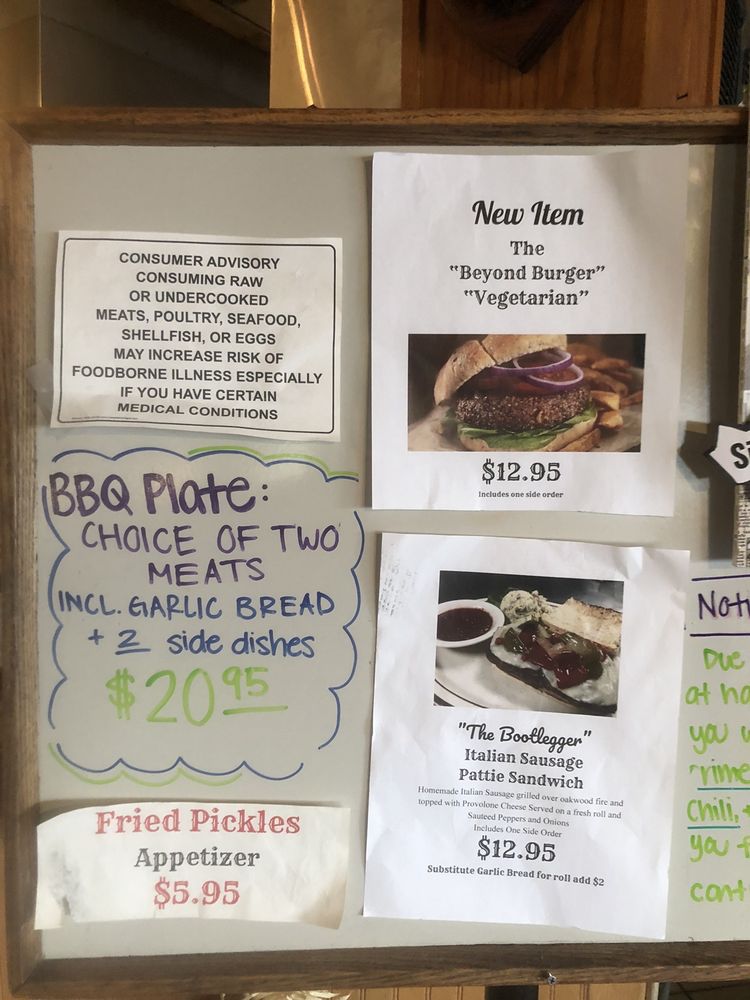 CONSUMER ADVISORY
CONSUMING RAW
OR UNDERCOOKED
MEATS, POULTRY, SEAFOOD,
SHELLFISH, OR EGGS
MAY INCREASE RISK OF
FOODBORNE ILLNESS ESPECIALLY
IF YOU HAVE CERTAIN
MEDICAL CONDITIONS
BBQ Plate:
CHOICE OF TWO
MEATS
INCL. GARLIC BREAD
+ 2 side dishes
$20 95
Fried Pickles
Appetizer
$5.95
New Item
The
"Beyond Burger"
"Vegetarian"
$12.95
Includes one side order
"The Bootlegger"
Italian Sausage
Pattie Sandwich
Homemade Italian Sausage grilled over oakwood fire and
topped with Provolone Cheese Served on a fresh roll and
Sauteed Peppers and Onions
Includes One Side Order
$12.95
Substitute Garlic Bread for roll add $2
Due
at
you
Chili,
you